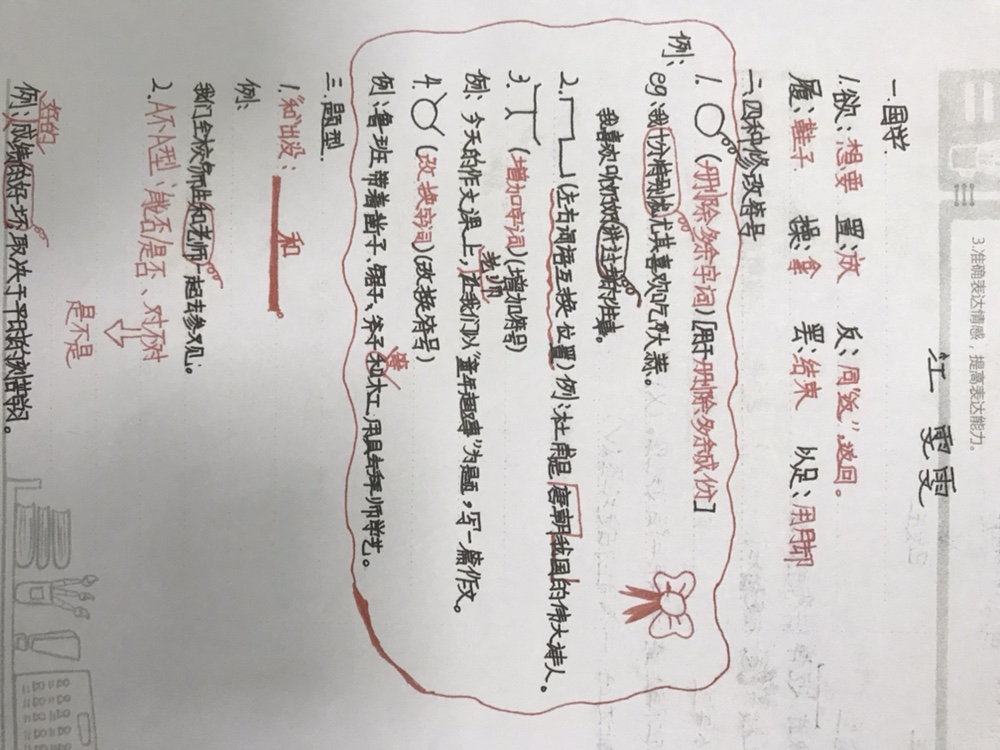 3.准确表达情感，提高表达能力。
江雯雯
一.国学.
1.欲：想要 置：放 反：同“返”，返回。
履：鞋子 操：拿 罢：结束 以足：用脚
二.四种修改符号
1.（删除多余字词）[用于删除多余成份]
例：eg：我十分特别尤其喜欢吃大蒜。
我喜欢叽叽喳喳
2.（左右词语互换位置）例：杜甫是唐朝我国的伟大诗人。
3.（增加字词）（增加符号）
例：今天的作文课上，老师让我们以“童年趣事”为题，写一篇作文。
4.（改换字词）（改换符号）
例：鲁班带着凿子、锯子、斧子和等大工用具去拜师学艺。
三.题型.
1.“和”出没： 和 。
例：
我们全校师生和老师一起去参观。
2.A不A型：能否是否、对不对
是不是
例：成绩的好坏取决于平时的学习。